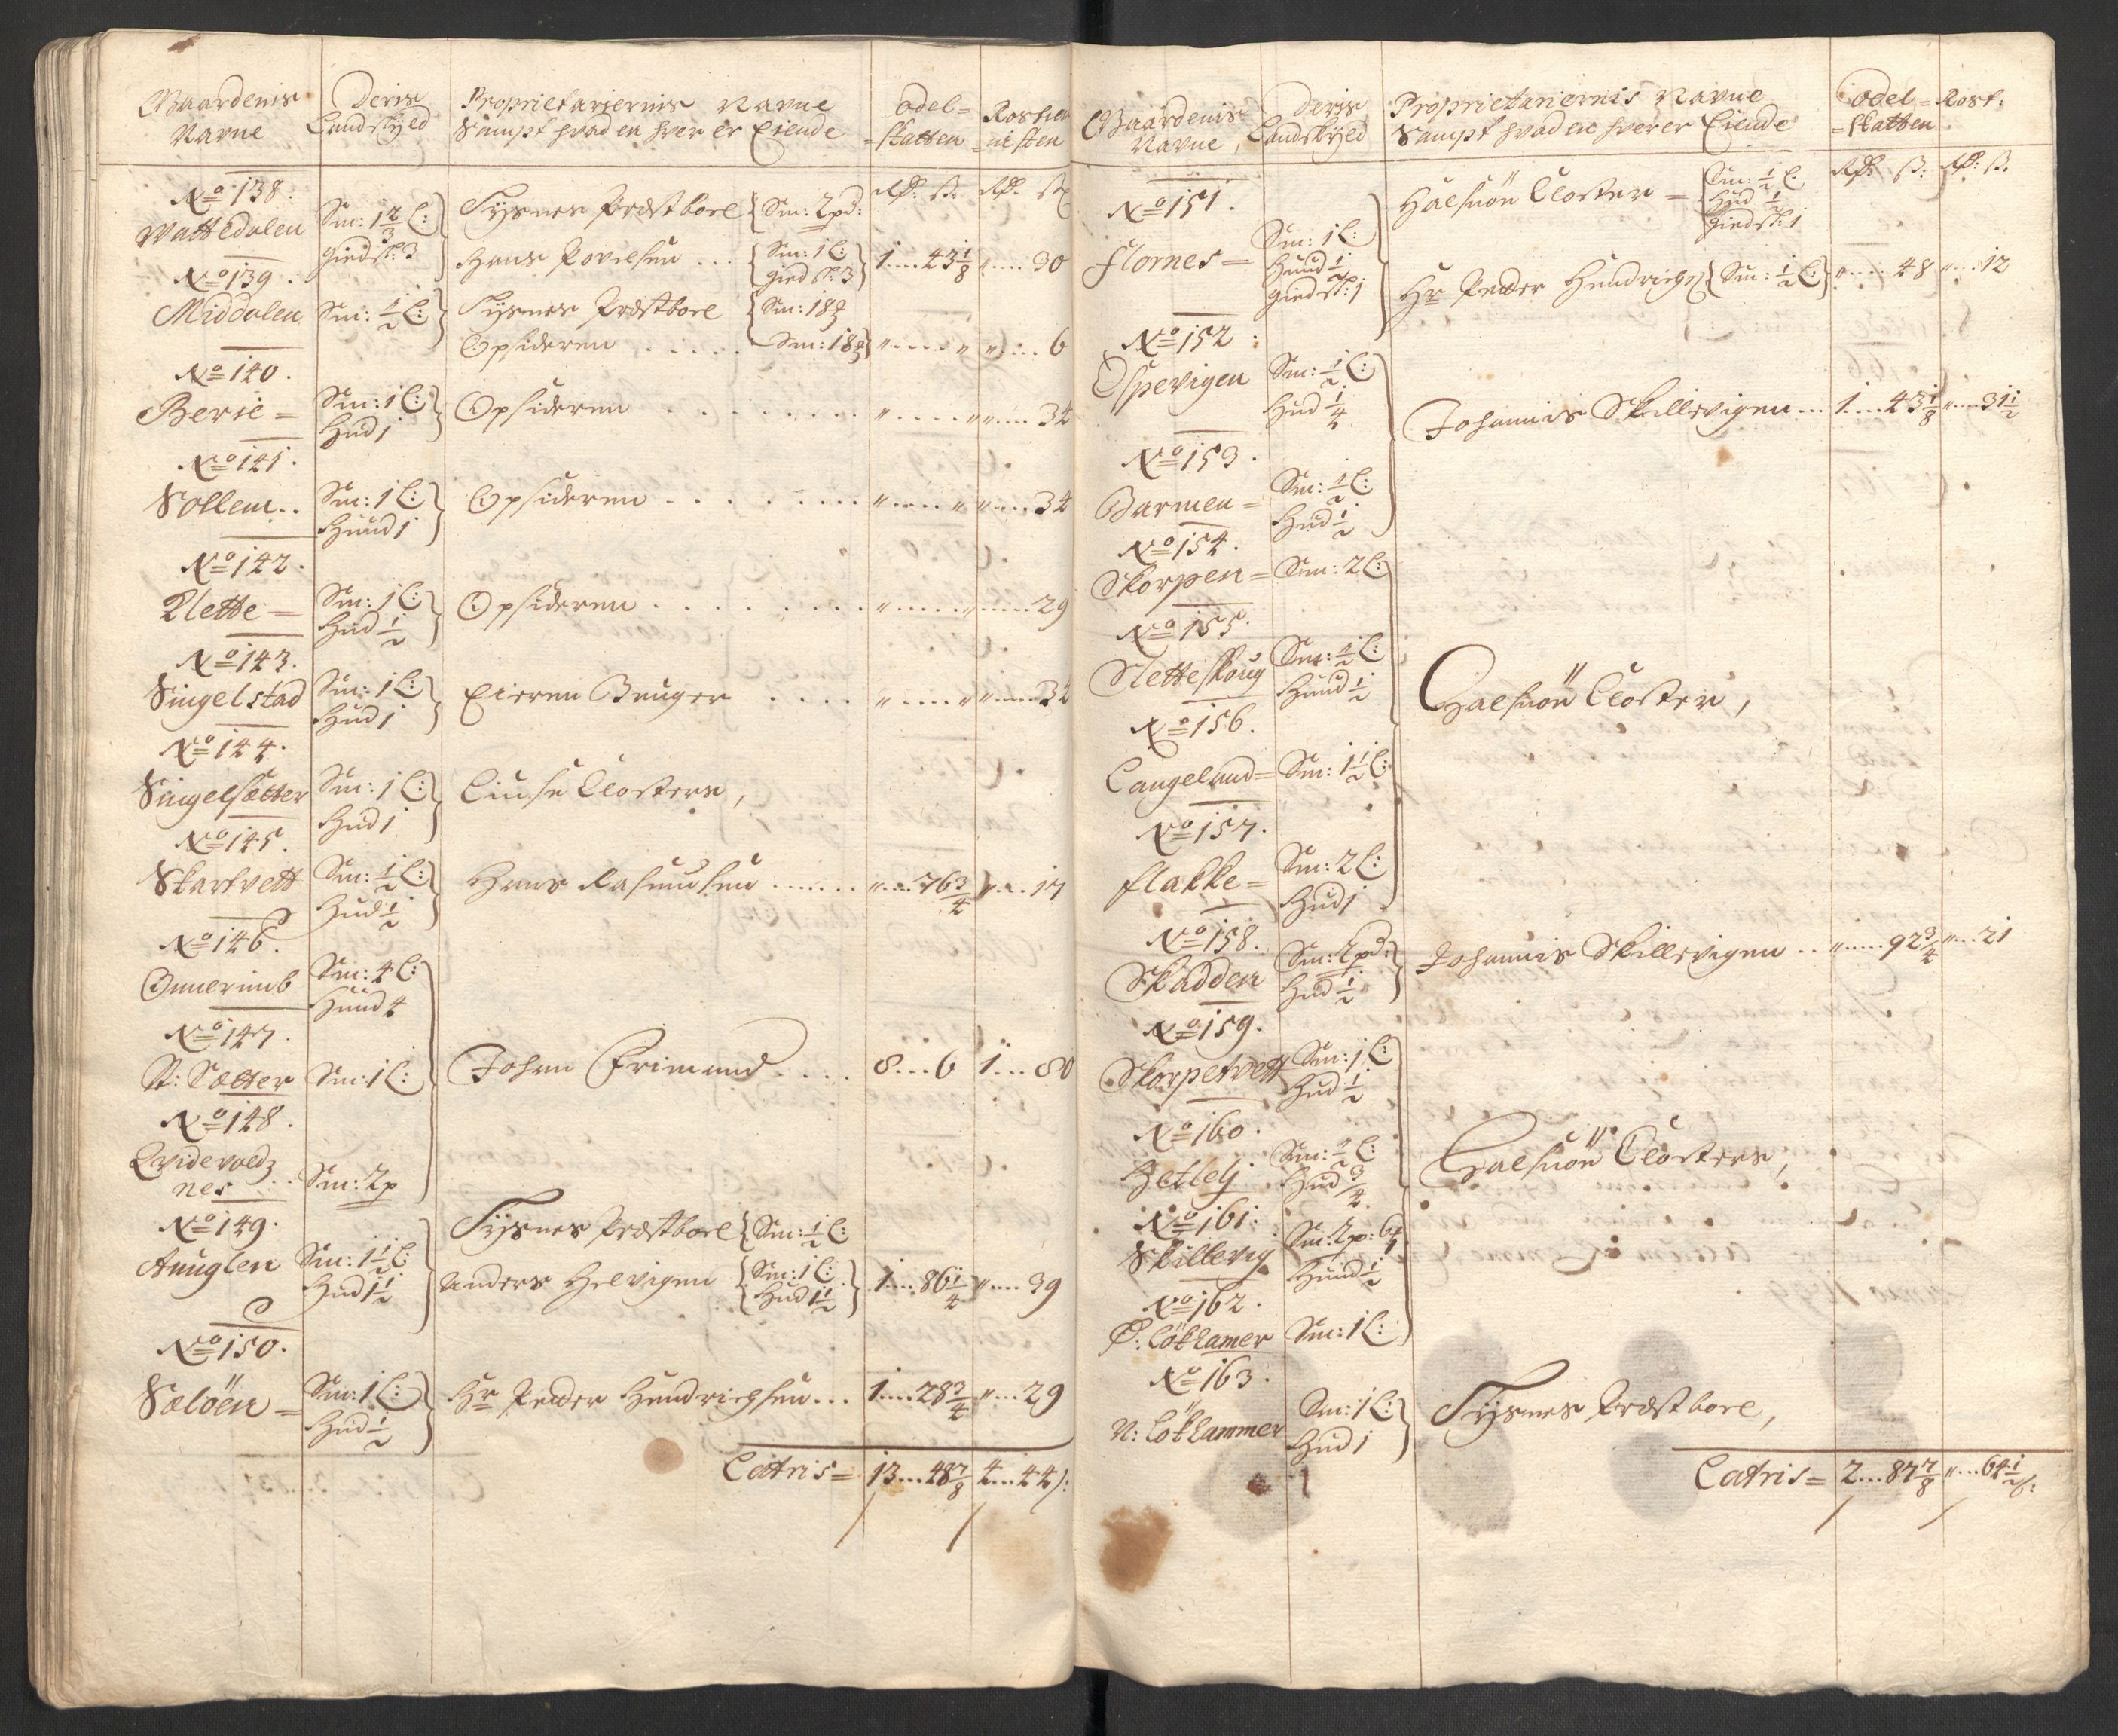 Gaardenis Navne
Deris Landskyld
Proprietariernis Navne Sampt hvad en hver er Eiende
odel=skatten
Rostienisten
No 138: Rdr: s: Rdr: s
Wattedalen Sm: 1 2/3 L: Giedsk: 3 Tysnes Præstboel Sm: 2 pd:
Hans Povelsen ... Sm: 1 L: Gied sk: 3 1....43 1/8 "....30
No 139.
Middalen Sm: 1/2 L: Tysnes Præstboel Sm: 18
Opsideren ..... Sm: 18 "....." "....6
No 140.
Berje = Sm: 1 L: Hud 1 Opsideren ........ "....." "....34
No 141.
Sollem.. Sm: 1 L: Huud 1 Opsideren ........ "....." "....34
No 142.
Flette = Sm: 1 L: Hud 1/2 Opsideren ........ "....." "....29
No 143.
Singelstad Sm: 1 L: Hud 1 Eieren Bruger .... "....." "....34
No 144.
Singelsætter Sm: 1 L: Hud 1 Liuse Closters,
No 145.
Skartvett Sm: 1/2 L: Hud 1/2 Hans Rasmusen ...... "....76 3/4 "....17
No 146.
Onnerimb Sm: 4 L: Huud 4
No 147.
St: Sætter Sm: 1 L: Johan Frimand .... 8...6 1...80
No 148.
Qvidevolds nes .. Sm: 2 p
No 149.
Anuglen Sm: 1 1/2 L: Hud 1 1/2 Tysnes Præstboel Sm: 1/2 L:
Anders Helvigen Sm: 1 L: Hud 1 1/2 1....86 1/4 "....39
No 150.
Seløen = Sm: 1 L: Hud 1/2 Hr Peder Hendrichsen ... 1....28 3/4 "....29
Latris = 13...48 7/8 4...44 s:
Gaardenis Navne,
Deris Landskyld
Proprietariernis Navne Sampt hvad en hver er Eiende
odel=skatten
Rost:
Rdr: s: Rdr: s.
No 151.
Flornes = Sm: 1 L: Huud 1/2 Giedsk: 1 Halsnøn Closter = Sm: 1/2 L: Hud 1/2 Giedsk: 1
Hr Peder Hendrichs Sm: 1/2 L: ".....48 "....12
No 152:
Ospevigen Sm: 1/2 L: Hud 1/4
Johannis Skillevigen ... 1....43 1/8 "....31 1/2
No 153.
Barmen = Sm: 1/2 L: Hud 1/2
No 154.
Skorpen = Sm: 2 L:
No 155.
Sletteskoug Sm: 1/2 L: Huud 1/2 Halsnøn Closter,
No 156.
Langeland = Sm: 1 1/2 L:
No 157.
Flakke = Sm: 2 L: Hud 1
No 158.
Skadden Sm: 2 pd: Hud 1/2 Johannis Skillevigen .. ".....92 3/4 "...21
No 159.
Skorpetvett Sm: 1 L: Hud 1/2
No 160.
Hetlelj Sm: 1/2 L: Hud 3/4 Halsnøn Closters,
No 161:
Skillevig Sm: 2 p: 6 Huud 1/2
No 162.
Ø: Løkhamer Sm: 1 L:
No 163.
N: Løkhammer Sm: 1 L: Hud 1 Tysnes Præstboel,
Latris = 2...87 7/8 "...64 1/2 s: